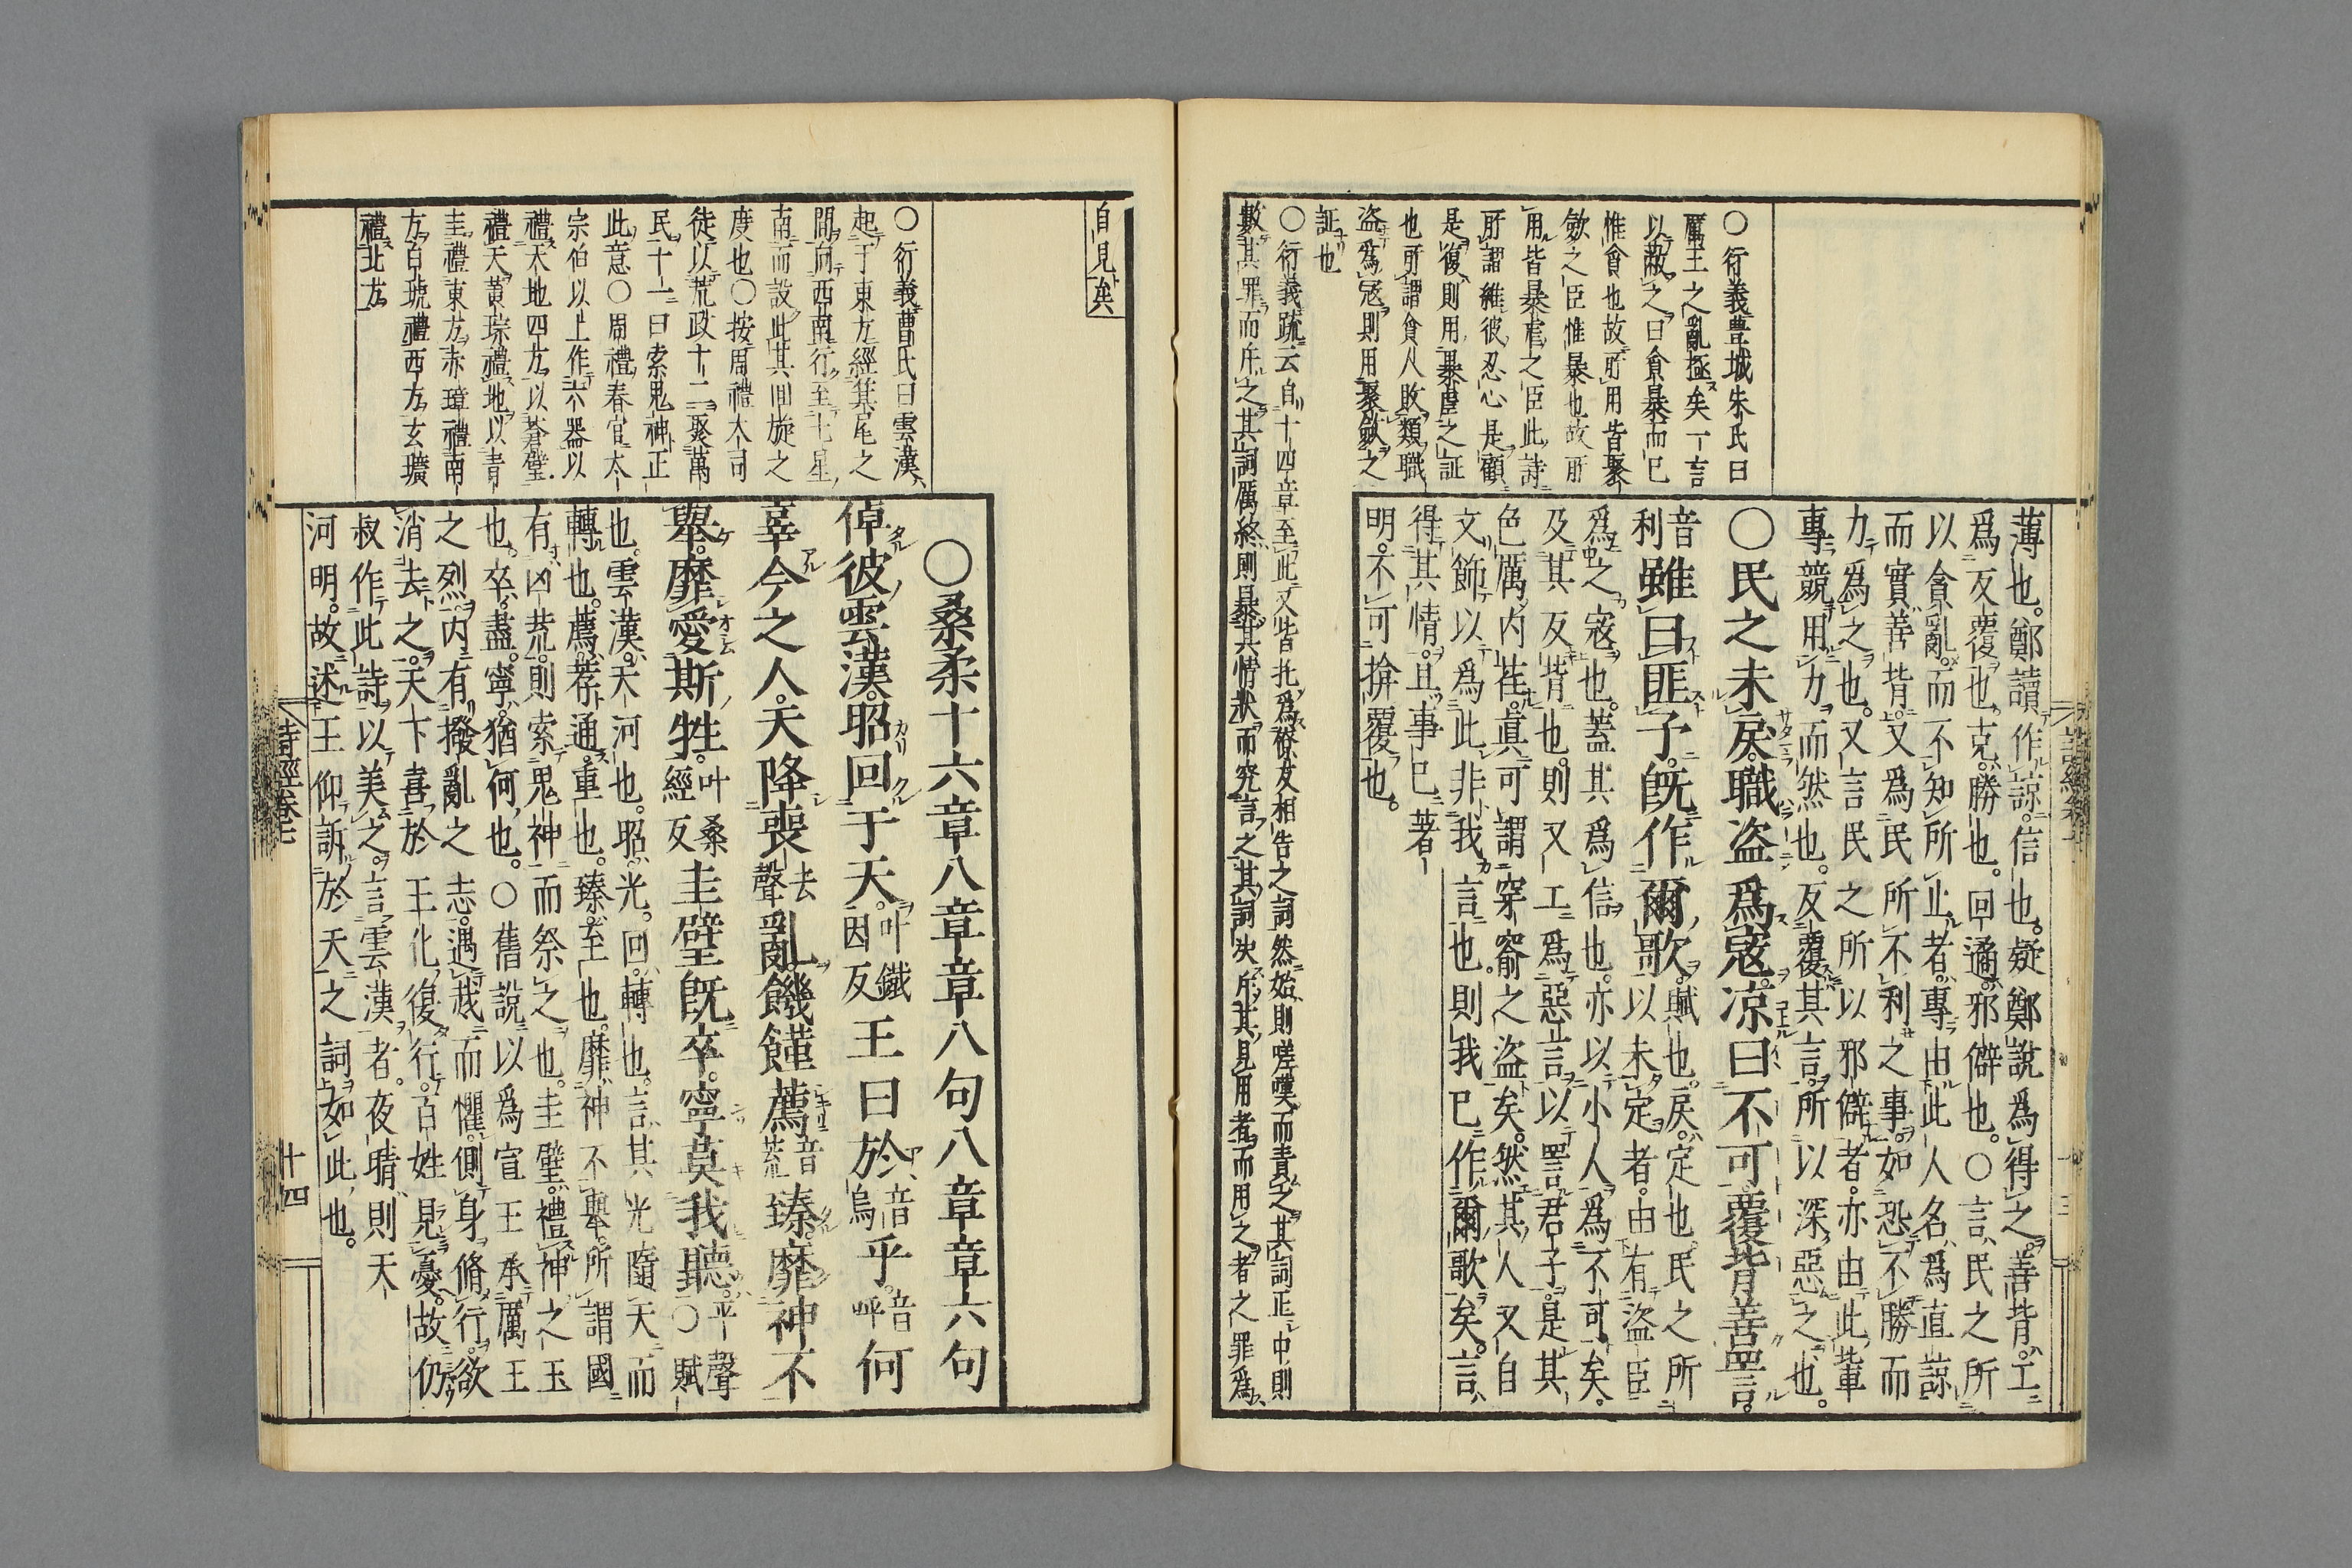 薄也。鄭讀作諒。信也。疑鄭說爲得之。善背。工
爲反覆也。克。勝也。回遹。邪僻也。〇言民之所
以貪亂。而不知所止者。專由此人名爲直諒
而實善背。又爲民所不利之事。如恐不勝而
力爲之也。又言民之所以邪僻者。亦由此輩
專競用力而然也。反覆其言。所以深惡之也。
〇民之未戾。職盜爲寇。涼曰不可。覆背善詈。
音利雖曰匪予。旣作爾歌。賦也。戾。定也。民之所
以未定者。由有盜臣
爲之寇也。蓋其爲信也。亦以小人爲不可矣。
及其反背也。則又工爲惡言。以詈君子。是其
色厲內荏。眞可謂穿窬之盜矣。然其人又自
文飾以爲此非我言也。則我已作爾歌矣。言
得其情。且事已著
明。不可揜覆也。
〇衍義豊城朱氏曰
厲王之亂極矣一言
以蔽之曰貪暴而已
惟貪也故所用皆聚
斂之臣惟暴也故所
用皆暴虐之臣此詩
所謂維彼忍心是顧
是復則用暴虐之証
也所謂貪人敗類職
盜爲寇則用聚斂之
証也
〇衍義疏云自十四章至此又皆托爲僚友相告之詞然始則嗟嘆而責之其詞正中則
數其罪而斥之其詞厲終則暴其情狀而究言之其詞決斥其見用者而用之者之罪爲
自見矣
〇桑柔十六章八章章八句八章章六句
倬彼雲漢。昭回于天。叶鐵因反王曰於音烏乎。音呼何
辜今之人。天降喪去聲亂。饑饉薦音荒臻。靡神不
舉。靡愛斯牲。叶桑經反圭璧旣卒。寧莫我聽。平聲〇賦
也。雲漢。天河也。昭。光。回。轉也。言其光隨天而
轉也。薦。荐通。重也。臻。至也。靡神不舉。所謂國
有凶荒。則索鬼神而祭之也。圭璧。禮神之玉
也。卒。盡。寧。猶何也。〇舊說以爲宣王承厲王
之烈。內有撥亂之志。遇烖而懼。側身脩行。欲
消去之。天下喜於王化復行。百姓見憂。故仍
叔作此詩以美之。言雲漢者。夜晴則天
河明。故述王仰訴於天之詞如此也。
〇衍義曹氏曰雲漢
起于東方經箕尾之
間向西南行至七星
南而設此其間旋之
度也〇按周禮大司
徒以荒政十二聚萬
民十一曰索鬼神正
此意〇周禮春官大
宗伯以上作六器以
禮天地四方以蒼璧
禮天黃琮禮地以青
圭禮東方赤璋禮南
方白琥禮西方玄璜
禮北方
詩經卷七
十四